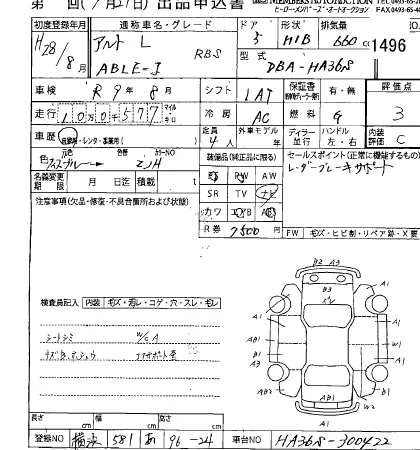 第 回( /月21日) 出品申込書
ヒーローメンバーズ・オートオークション FAX 0493-65-
初度登録年月 通称車名・グレード ドア 形状 排気量
H28/8月 アルト L RBS 5 H/B 660cc 1496
ABLE-I 型式 DBA-HA36S
車検 R9年8月 シフト IAT 保証書 有・無 評価点
走行 100577 マイル キロ 冷房 AC 燃料 G 3
車歴 自家用・レンタ・事業用 定員 4人 外車モデル 年 ディラー 並行 ハンドル 左・右 内装評価 C
色 元色 色替 カラーNO ZJH
装備品(純正品に限る) セールスポイント(正常に機能するもの)
PS PW AW レーダーブレーキサポート
名義変更期限 月 日迄 積載 t
SR TV ナビ
注意事項(欠品・修復・不具合箇所および状態)
カワ エアB ABS
R券 7500
FW キズ・ヒビ制・リペア跡・X要
検査員記入 内装 キズ・汚レ・コゲ・穴・スレ・モレ
シートシミ W/G A
長さ cm 幅 cm 高さ cm
登録NO 横浜 581 あ 96-24 車台NO HA36S-300422
B2 A3
B3
A1 A1
A1 W1
AB1 B1 A1
A1 A3
AB2 B2
A1